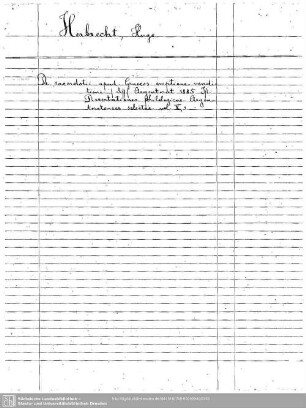 Herbrecht, Hugo
De sacerdotii apud Graecos emptione vendi-
tione. Argentorati 1885
Dissertationes philologicae Argen-
toratenses selectae vol X,
Sächsische Landesbibliothek -
Staats- und Universitätsbibliothek Dresden